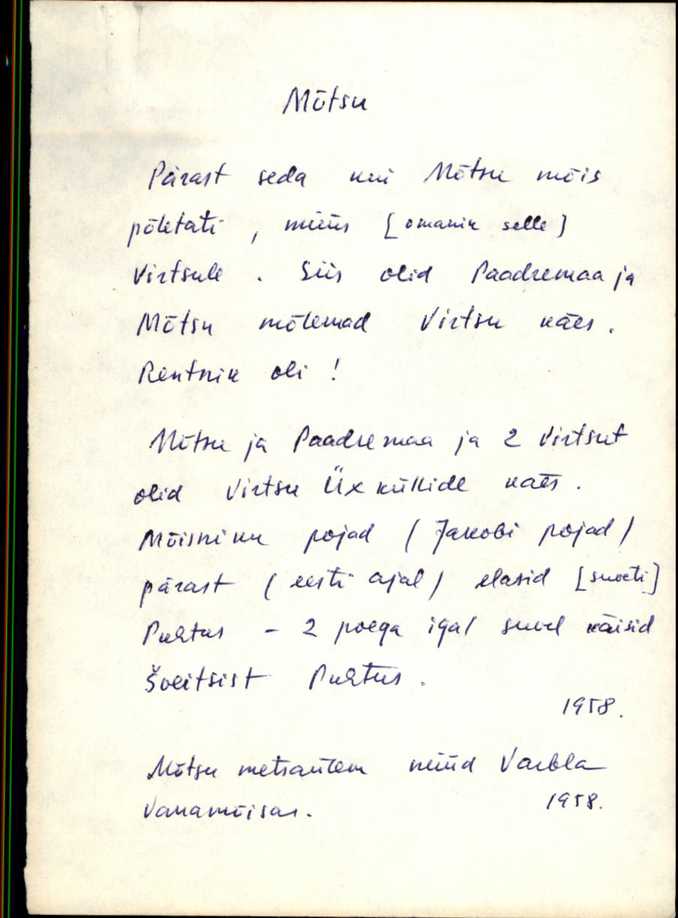 Mõtsu
Pärast seda kui Mõtsu mõis
põletati, müüs [omanik selle]
Virtsule. Siis olid Paadremaa ja
Mõtsu mõlemad Virtsu käes.
Rentnik oli!
Mõtsu ja Paadremaa ja 2 Virtsut
olid Virtsu Üxküllide käes.
Mõisniku pojad (Jakobi pojad)
pärast (eesti ajal) elasid [suveti]
Puhtus - 2 poega igal suvel käisid
Šveitsist Puhtus.
1958.
Mõtsu metsaülem nüüd Varbla
Vanamõisas.
1958.